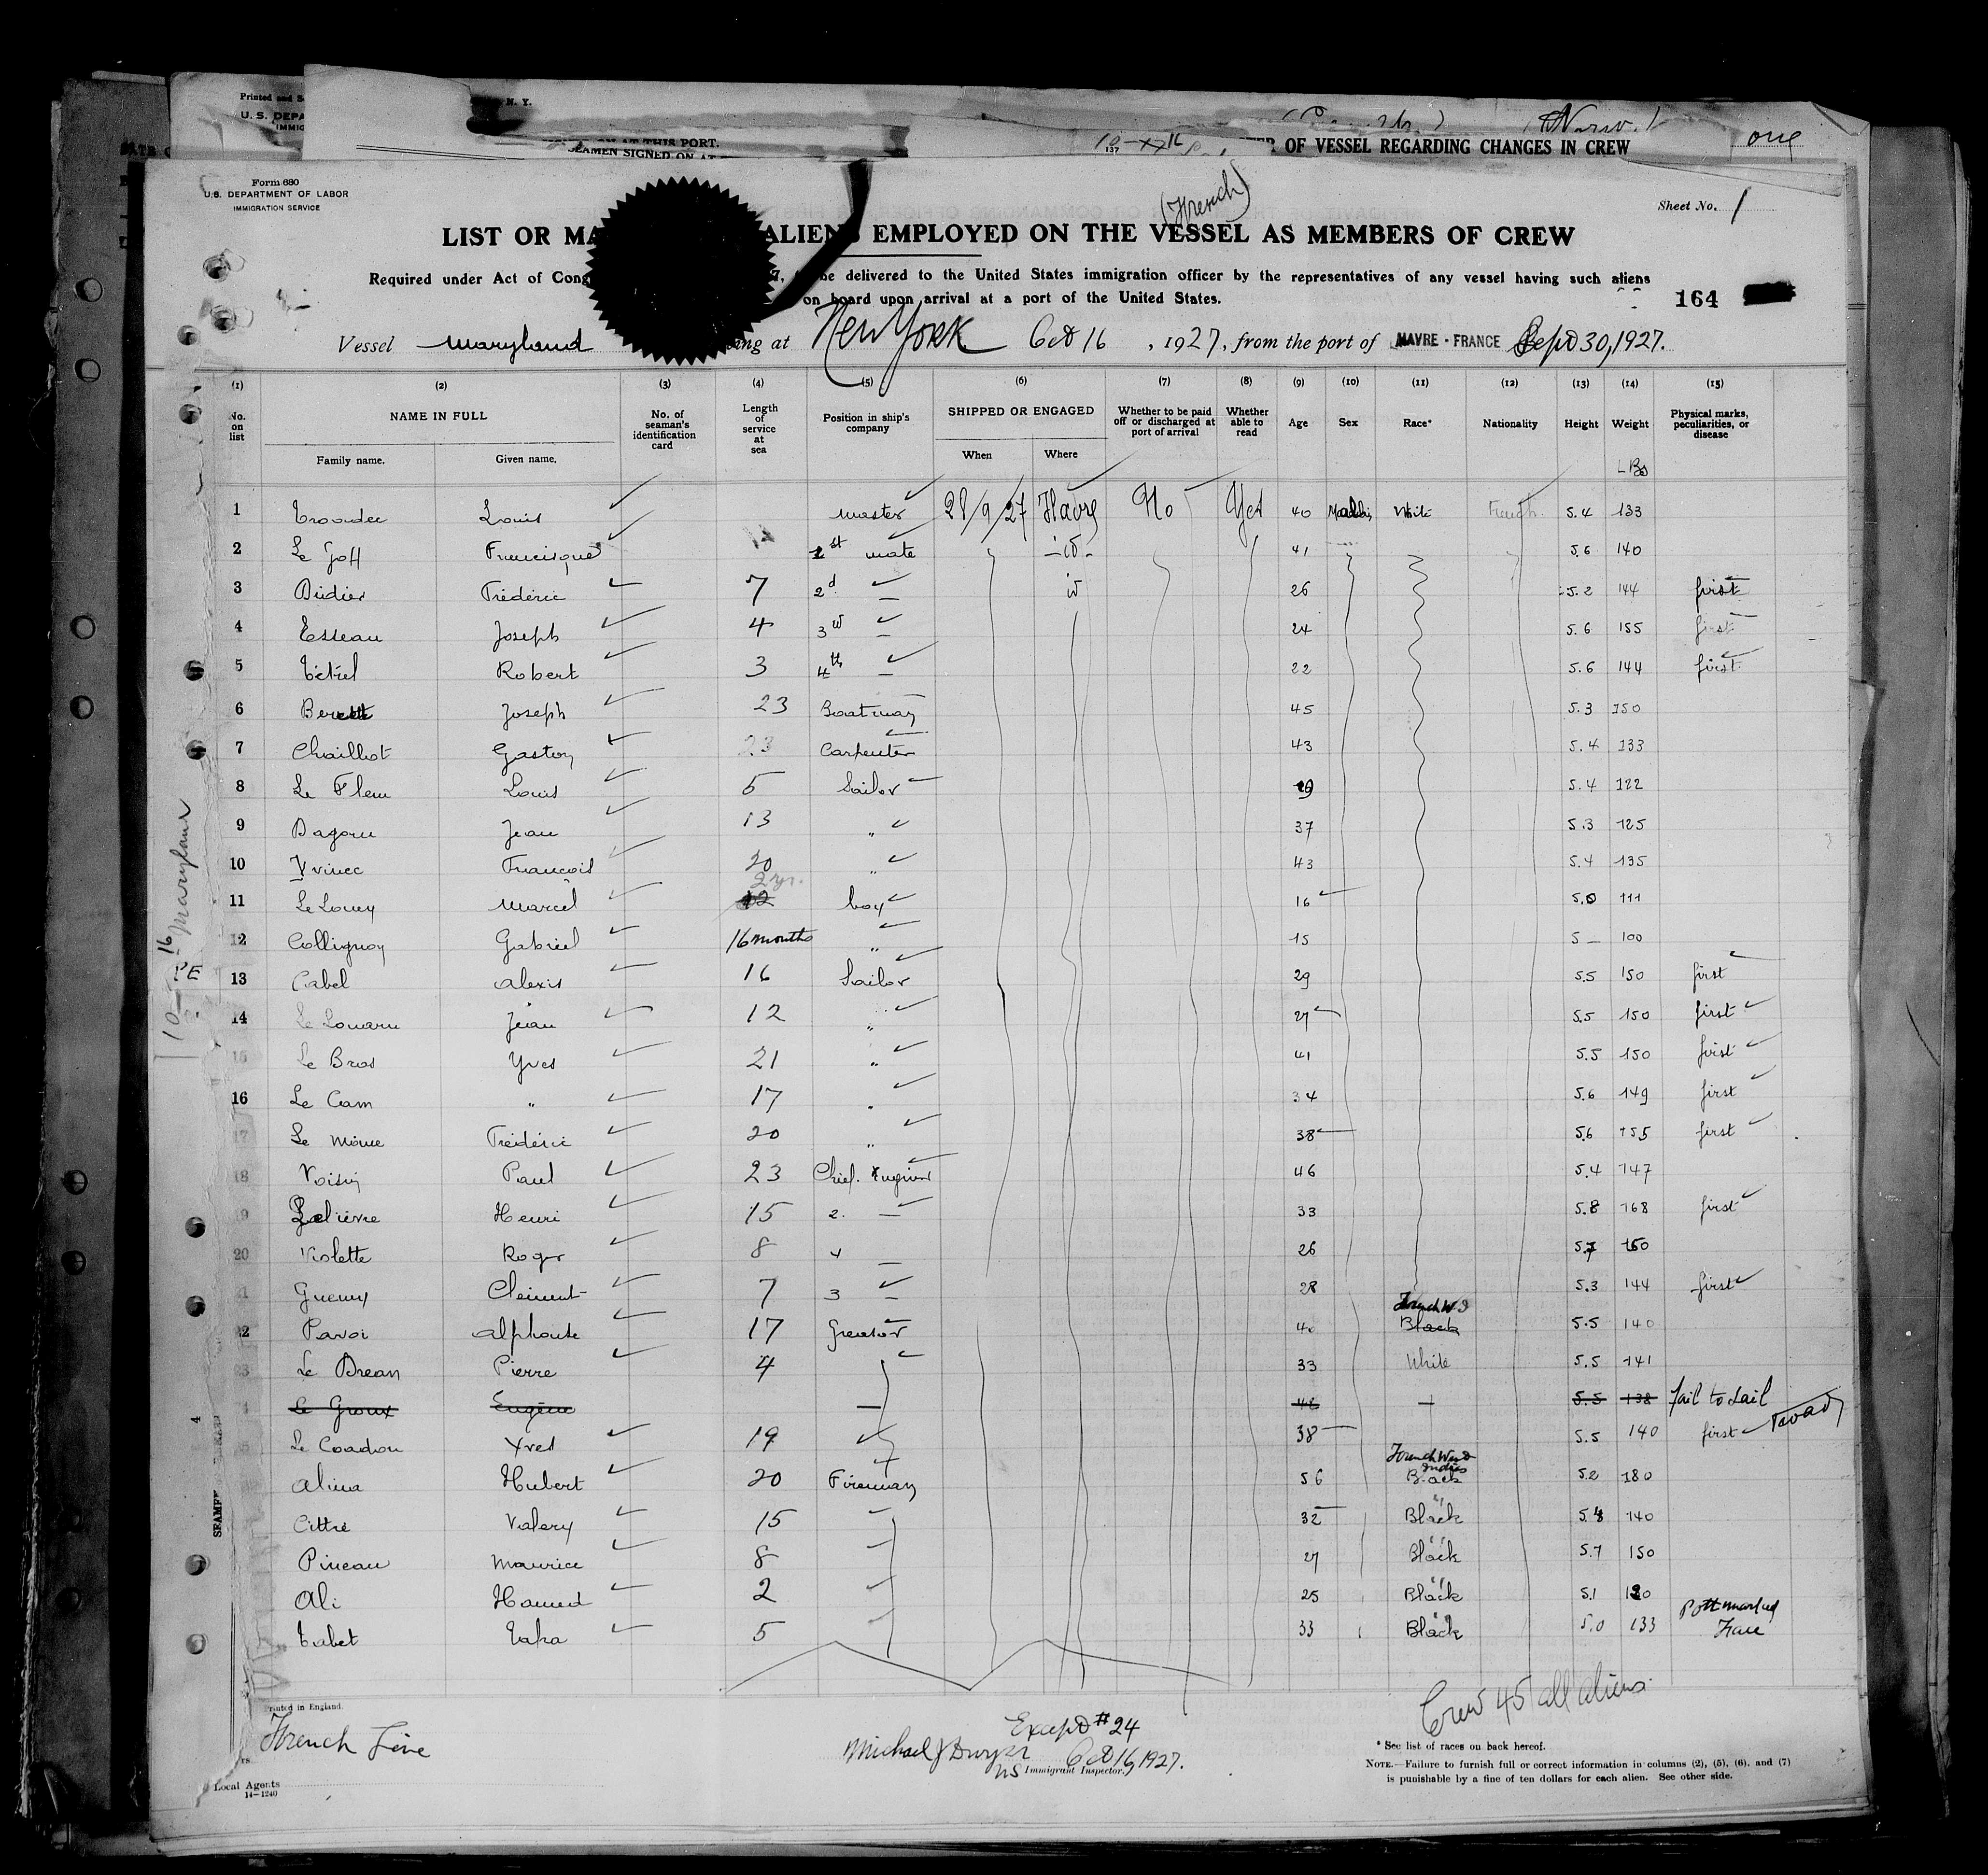 Printed and
N. Y.
U. S. DEPA
IMMIG
AT THIS PORT.
SEAMEN SIGNED ON AT
OF VESSEL REGARDING CHANGES IN CREW
one
Form 680
U.S. DEPARTMENT OF LABOR
IMMIGRATION SERVICE
(French)
Sheet No. 1
LIST OR MA ALIENS EMPLOYED ON THE VESSEL AS MEMBERS OF CREW
Required under Act of Cong 7, to be delivered to the United States immigration officer by the representatives of any vessel having such aliens
on board upon arrival at a port of the United States.
164
Vessel Maryland ing at New York Oct 16, 1927, from the port of HAVRE - FRANCE Sept 30, 1927.
(1) (2) (3) (4) (5) (6) (7) (8) (9) (10) (11) (12) (13) (14) (15)
No. on list NAME IN FULL No. of seaman's identification card Length of service at sea Position in ship's company SHIPPED OR ENGAGED Whether to be paid off or discharged at port of arrival Whether able to read Age Sex Race* Nationality Height Weight Physical marks, peculiarities, or disease
Family name. Given name. When Where Lbs
1 Louis master 28/9/27 Havre No Yes 40 White French 5.4 133
2 Le Goff Francisque 1st mate -id- 41 5.6 140
3 Didier Frédéric 7 2d — id 26 5.2 144 first
4 Esseau Joseph 4 3rd — 24 5.6 155 first
5 Tétrel Robert 3 4th — 22 5.6 144 first
6 Joseph 23 Boatman 45 5.3 150
7 Chaillot Gaston 23 Carpenter 43 5.4 133
8 Le Flem Louis 5 Sailor 29 5.4 122
9 Dagorn Jean 13 " 37 5.3 125
10 Yvinec Francois 20 " 43 5.4 135
2 yr.
11 Le Louey Marcel 12 boy 16 5.0 111
12 Collignon Gabriel 16 months " 15 5 — 100
13 Cabel Alexis 16 Sailor 29 5.5 150 first
14 Le Louarn Jean 12 " 27 5.5 150 first
15 Le Bras Yves 21 " 41 5.5 150 first
16 Le Cam " 17 " 34 5.6 149 first
17 Le Moine Frédéric 20 " 38 5.6 155 first
18 Voisin Paul 23 Chief. Engineer 46 5.4 147
19 Lelièvre Henri 15 2. — 33 5.8 168 first
20 Violette Roger 8 — 26 5.7 150
Clément 7 3 — 28 5.3 144 first
French W.I
22 Alphonse 17 Greasor 40 Black 5.5 140
23 Le Drean Pierre 4 33 White 5.5 141
Le Groux Eugène — 46 — 5.5 138 fail to sail
Le Coadou Yves 19 38 5.5 140 first
French West Indies
Alina Hubert 20 Fireman 56 Black 5.2 180
Cittré Valery 15 32 " Black 5.8 140
Pineau Maurice 8 27 " Black 5.7 150
Ali Hamed 2 25 " Black 5.1 120
Tabet Taha 5 33 " Black 5.0 133 Pott marked Face
10- 16 Maryland
Printed in England.
French Line
Local Agents
14—1240
Crew 45 all aliens
Except #24
Michael J Dwyer Oct 16, 1927.
US Immigrant Inspector.
* See list of races on back hereof.
NOTE.—Failure to furnish full or correct information in columns (2), (5), (6), and (7)
is punishable by a fine of ten dollars for each alien. See other side.